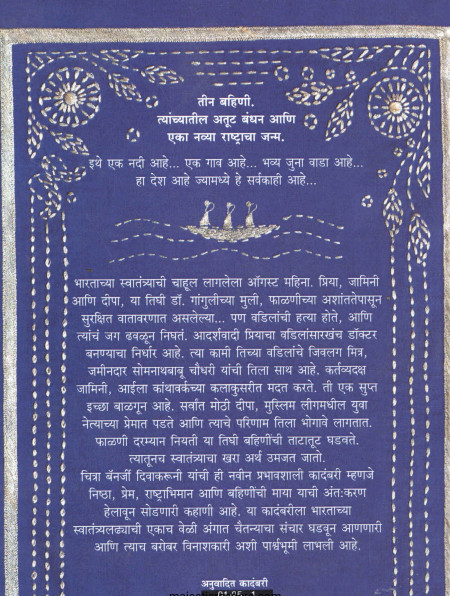 तीन बहिणी.
त्यांच्यातील अतूट बंधन आणि
एका नव्या राष्ट्राचा जन्म.
इथे एक नदी आहे... एक गाव आहे... भव्य जुना वाडा आहे...
हा देश आहे ज्यामध्ये हे सर्वकाही आहे...
भारताच्या स्वातंत्र्याची चाहूल लागलेला ऑगस्ट महिना. प्रिया, जामिनी
आणि दीपा, या तिघी डॉ. गांगुलीच्या मुली, फाळणीच्या अशांततेपासून
सुरक्षित वातावरणात असलेल्या... पण वडिलांची हत्या होते, आणि
त्यांचं जग ढवळून निघतं. आदर्शवादी प्रियाचा वडिलांसारखंच डॉक्टर
बनण्याचा निर्धार आहे. त्या कामी तिच्या वडिलांचे जिवलग मित्र,
जमीनदार सोमनाथबाबू चौधरी यांची तिला साथ आहे. कर्तव्यदक्ष
जामिनी, आईला कांथावर्कच्या कलाकुसरीत मदत करते. ती एक सुप्त
इच्छा बाळगून आहे. सर्वांत मोठी दीपा, मुस्लिम लीगमधील युवा
नेत्याच्या प्रेमात पडते आणि त्याचे परिणाम तिला भोगावे लागतात.
फाळणी दरम्यान नियती या तिघी बहिणींची ताटातूट घडवते.
त्यातूनच स्वातंत्र्याचा खरा अर्थ उमजत जातो.
चित्रा बॅनर्जी दिवाकरूनी यांची ही नवीन प्रभावशाली कादंबरी म्हणजे
निष्ठा, प्रेम, राष्ट्राभिमान आणि बहिणींची माया याची अंत:करण
हेलावून सोडणारी कहाणी आहे. या कादंबरीला भारताच्या
स्वातंत्र्यलढ्याची एकाच वेळी अंगात चैतन्याचा संचार घडवून आणणारी
आणि त्याच बरोबर विनाशकारी अशी पार्श्वभूमी लाभली आहे.
अनुवादित कादंबरी